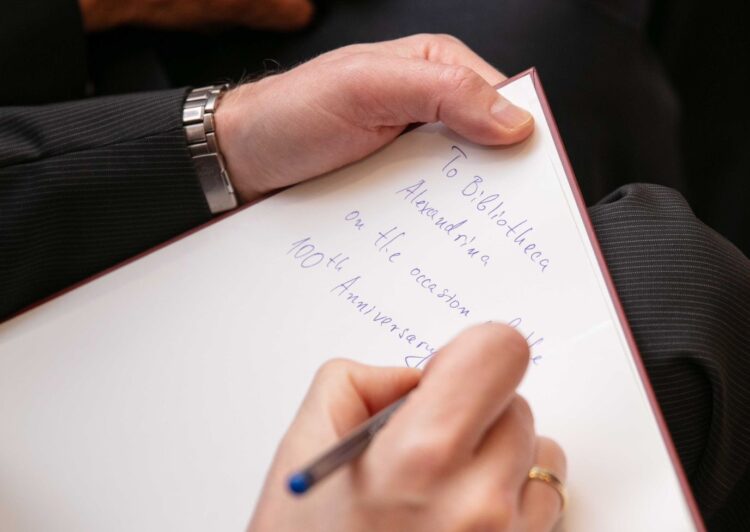 To Bibliotheca
Alexandrina
on the occasion of the
100th Anniversary